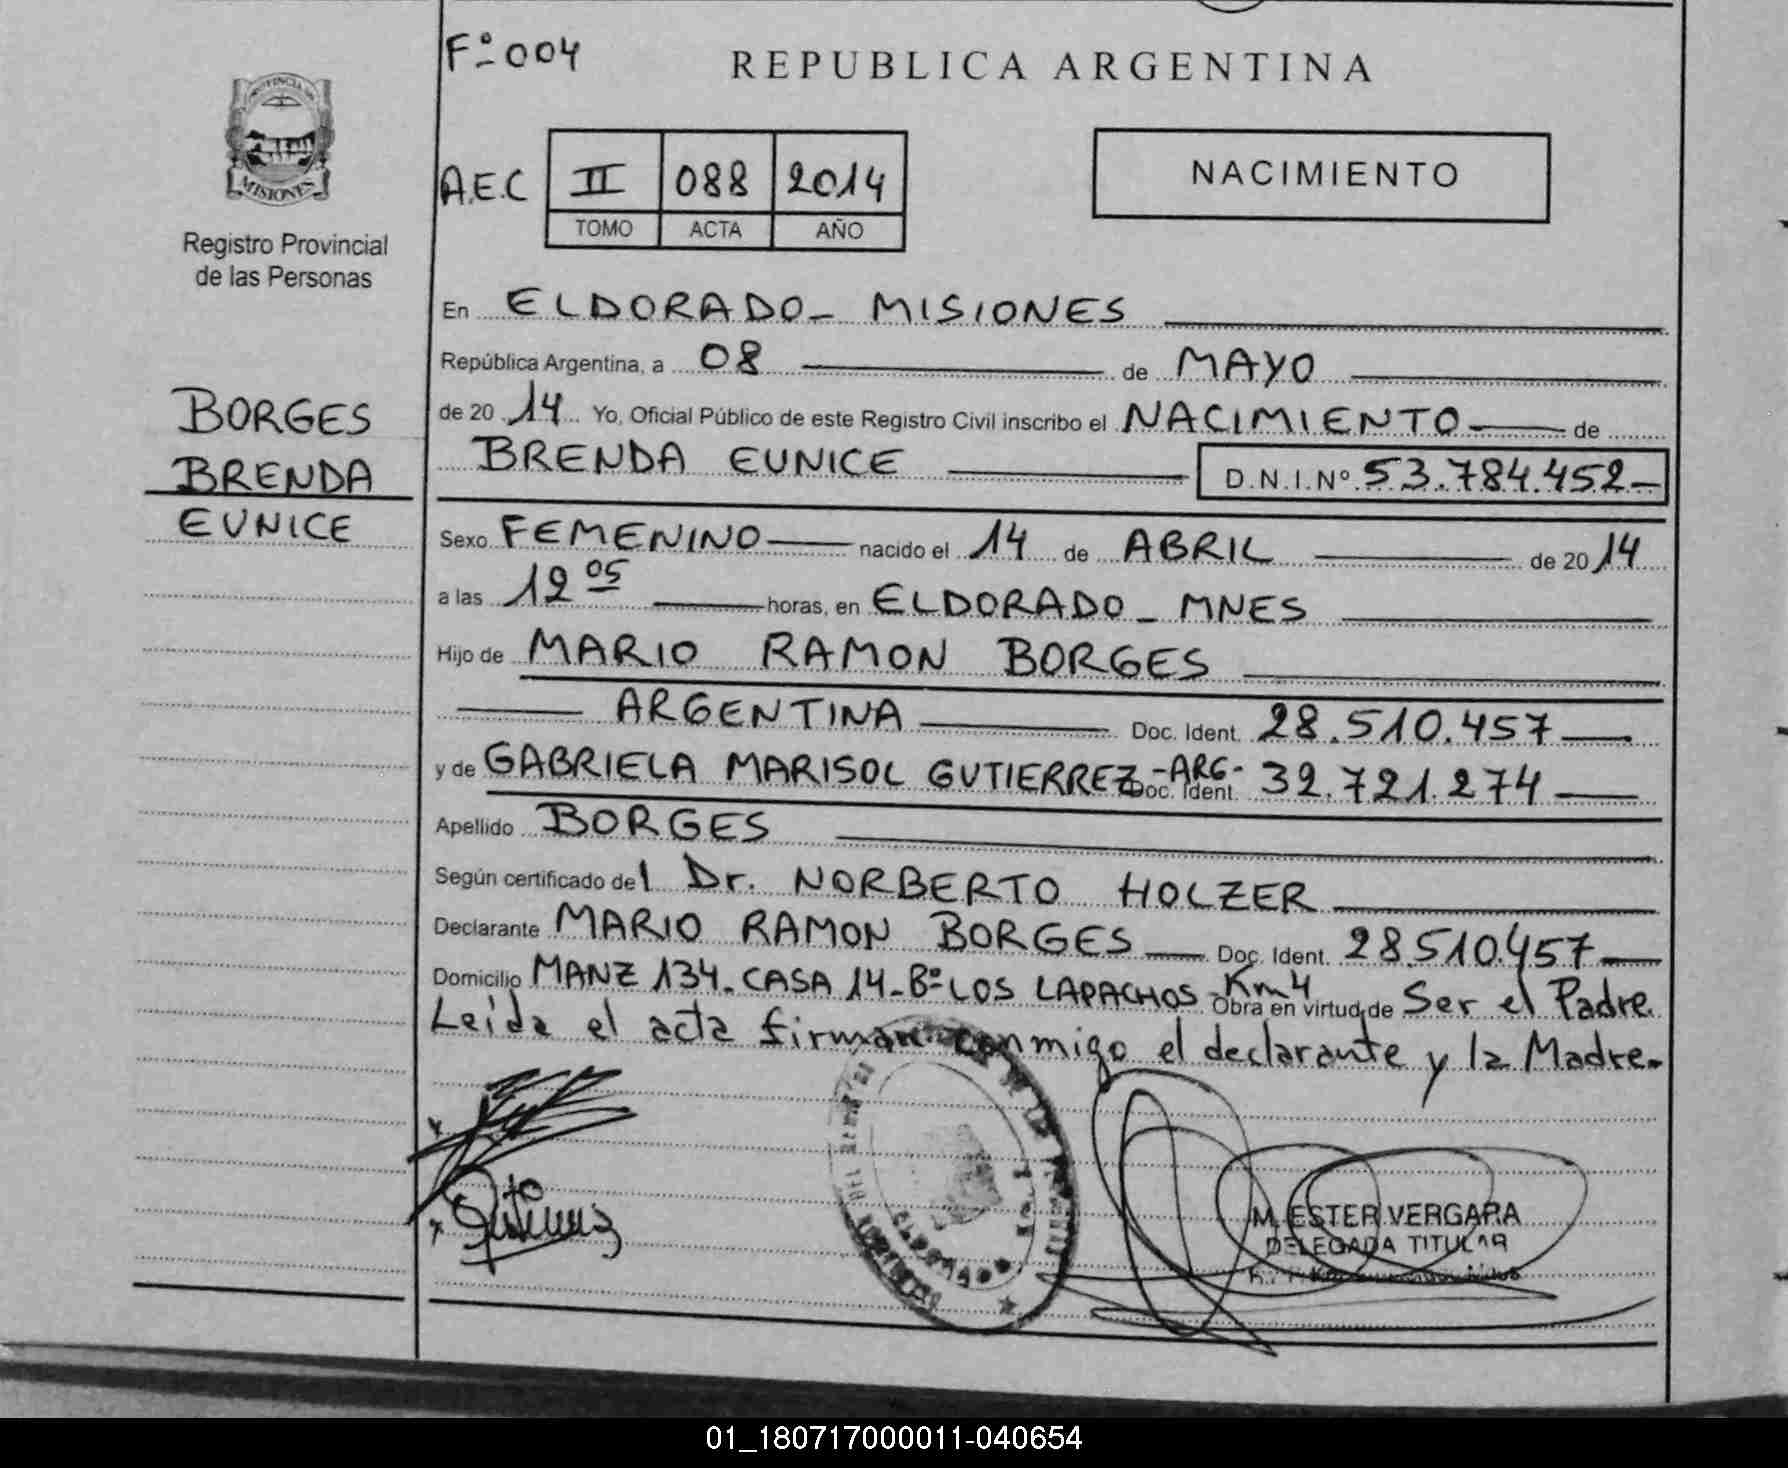 F° 004
REPUBLICA ARGENTINA
PROVINCIA DE
MISIONES
Registro Provincial
de las Personas
A.E.C II 088 2014
TOMO ACTA AÑO
NACIMIENTO
BORGES
BRENDA
EUNICE
En ELDORADO - MISIONES
República Argentina, a 08 de MAYO
de 20 14 Yo, Oficial Público de este Registro Civil inscribo el NACIMIENTO de
BRENDA EUNICE D.N.I. Nº 53.784.452-
Sexo FEMENINO nacido el 14 de ABRIL de 20 14
a las 12 05 horas, en ELDORADO - MNES
Hijo de MARIO RAMON BORGES
ARGENTINA Doc. Ident. 28.510.457
y de GABRIELA MARISOL GUTIERREZ -ARG- Doc. Ident. 32.721.274
Apellido BORGES
Según certificado del Dr. NORBERTO HOLZER
Declarante MARIO RAMON BORGES Doc. Ident. 28.510.457
Domicilio MANZ 134. CASA 14 - B° LOS LAPACHOS - Km 4 Obra en virtud de Ser el Padre.
Leída el acta firman conmigo el declarante y la Madre.
M. ESTER VERGARA
DELEGADA TITULAR
01_180717000011-040654